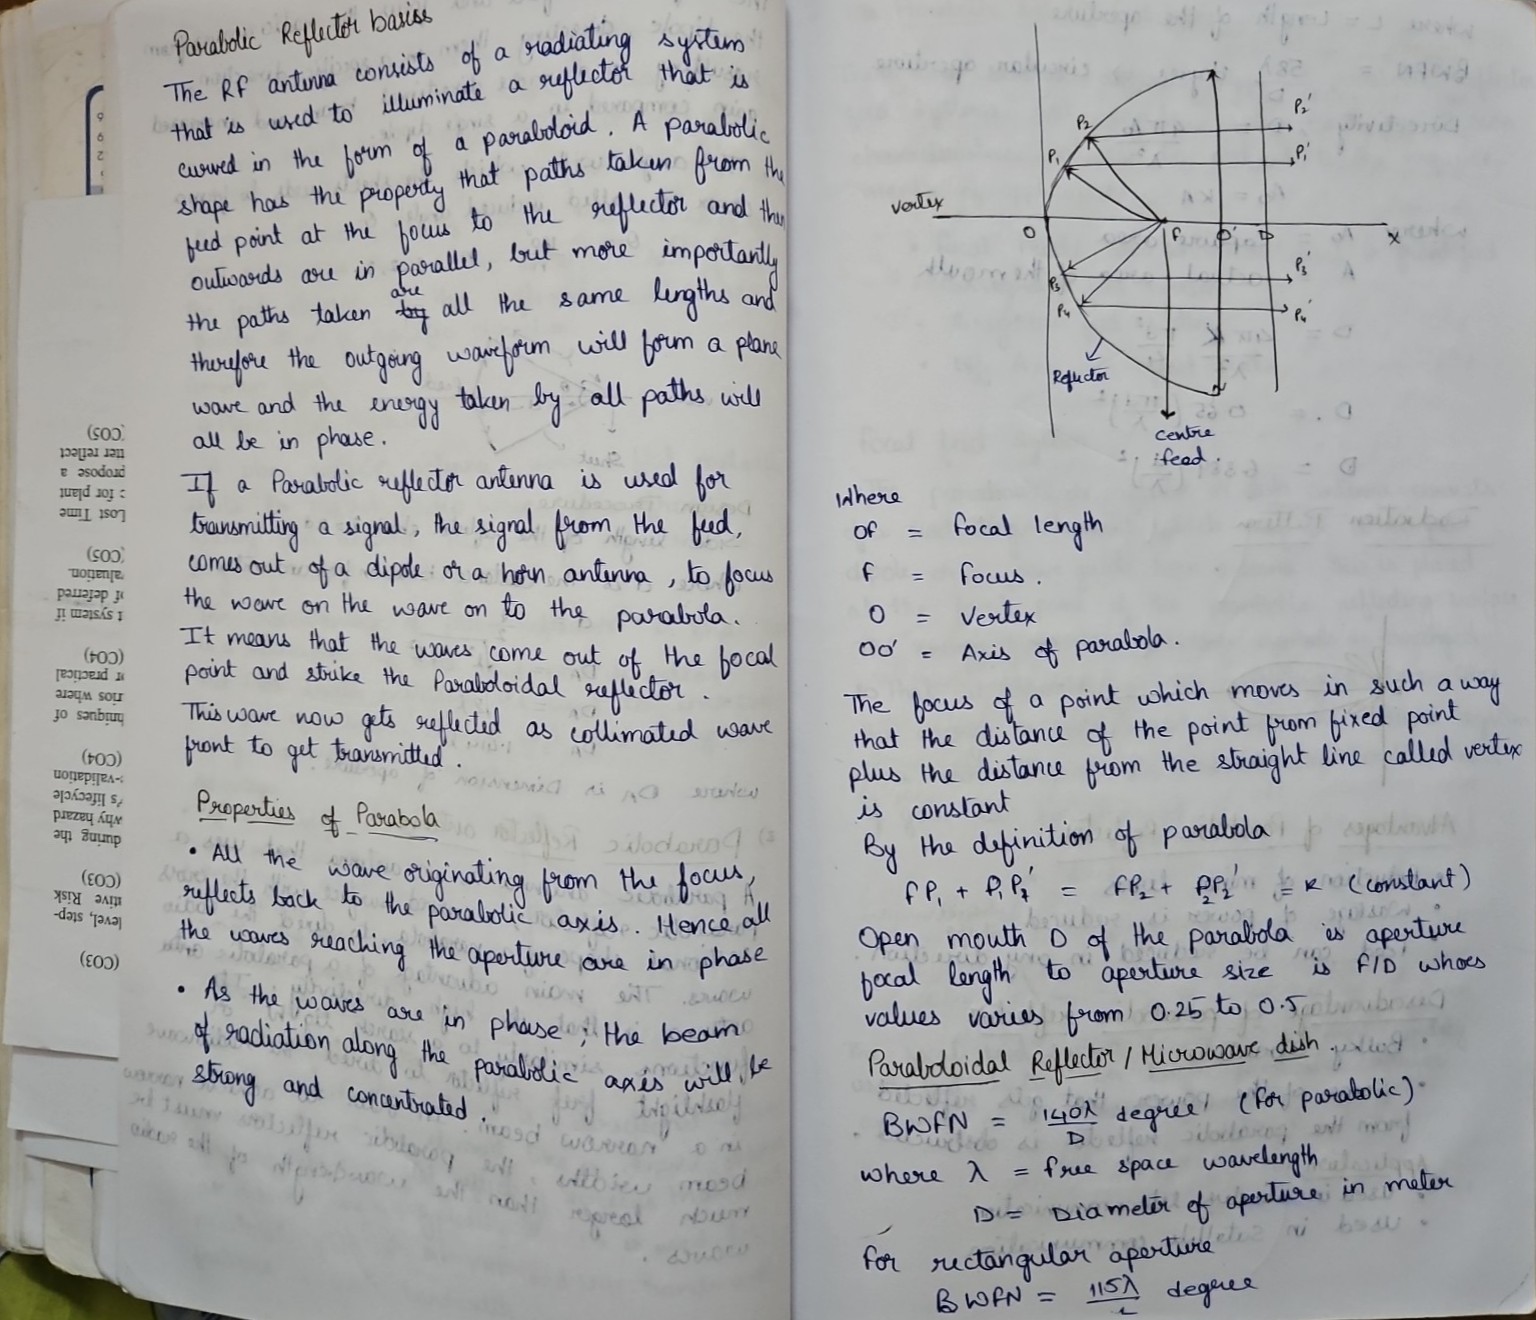 Parabolic Reflector basiss
The RF antenna consists of a radiating system
that is used to illuminate a reflector that is
curved in the form of a paraboloid. A parabolic
shape has the property that paths taken from the
feed point at the focus to the reflector and then
outwards are in parallel, but more importantly
the paths taken are all the same lengths and
therefore the outgoing waveform will form a plane
wave and the energy taken by all paths will
all be in phase.
If a Parabolic reflector antenna is used for
transmitting a signal, the signal from the feed,
comes out of a dipole or a horn antenna, to focus
the wave on the wave on to the parabola.
It means that the waves come out of the focal
point and strike the Paraboloidal reflector.
This wave now gets reflected as collimated wave
front to get transmitted.
Properties of Parabola
• All the wave originating from the focus,
reflects back to the parabolic axis. Hence all
the waves reaching the aperture are in phase
• As the waves are in phase, the beam
of radiation along the parabolic axis will be
strong and concentrated.
P2 P2'
P1 P1'
vertex
O F O' D X
P3 P3'
P4 P4'
Reflector
centre
feed.
Where
OF = Focal length
F = Focus.
O = Vertex
OO' = Axis of parabola.
The focus of a point which moves in such a way
that the distance of the point from fixed point
plus the distance from the straight line called vertex
is constant
By the definition of parabola
FP1 + P1P1' = FP2 + P2P2' = K (constant)
Open mouth D of the parabola is aperture
focal length to aperture size is F/D whoes
values varies from 0.25 to 0.5
Paraboloidal Reflector / Microwave dish.
BWFN = 140λ/D degree (for parabolic)
where λ = free space wavelength
D = Diameter of aperture in meter
for rectangular aperture
BWFN = 115λ/L degree
(CO5)
tier reflect
propose a
t for plant
Lost Time
(CO5)
aluation.
of deferred
t system if
(CO4)
or practical
rios where
hniques of
(CO4)
-validation
's lifecycle
why hazard
during the
(CO3)
ative Risk
level, step-
(CO3)